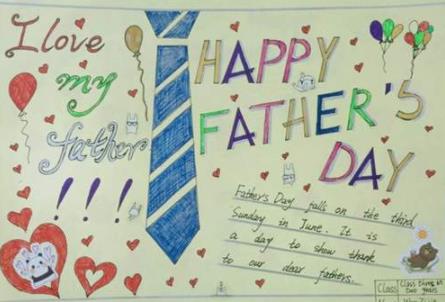 I love
my
father
!!!
HAPPY
FATHER'S
DAY
Father's Day falls on the third
Sunday in June. It is
a day to show thank
to our dear fathers.
Class
Class